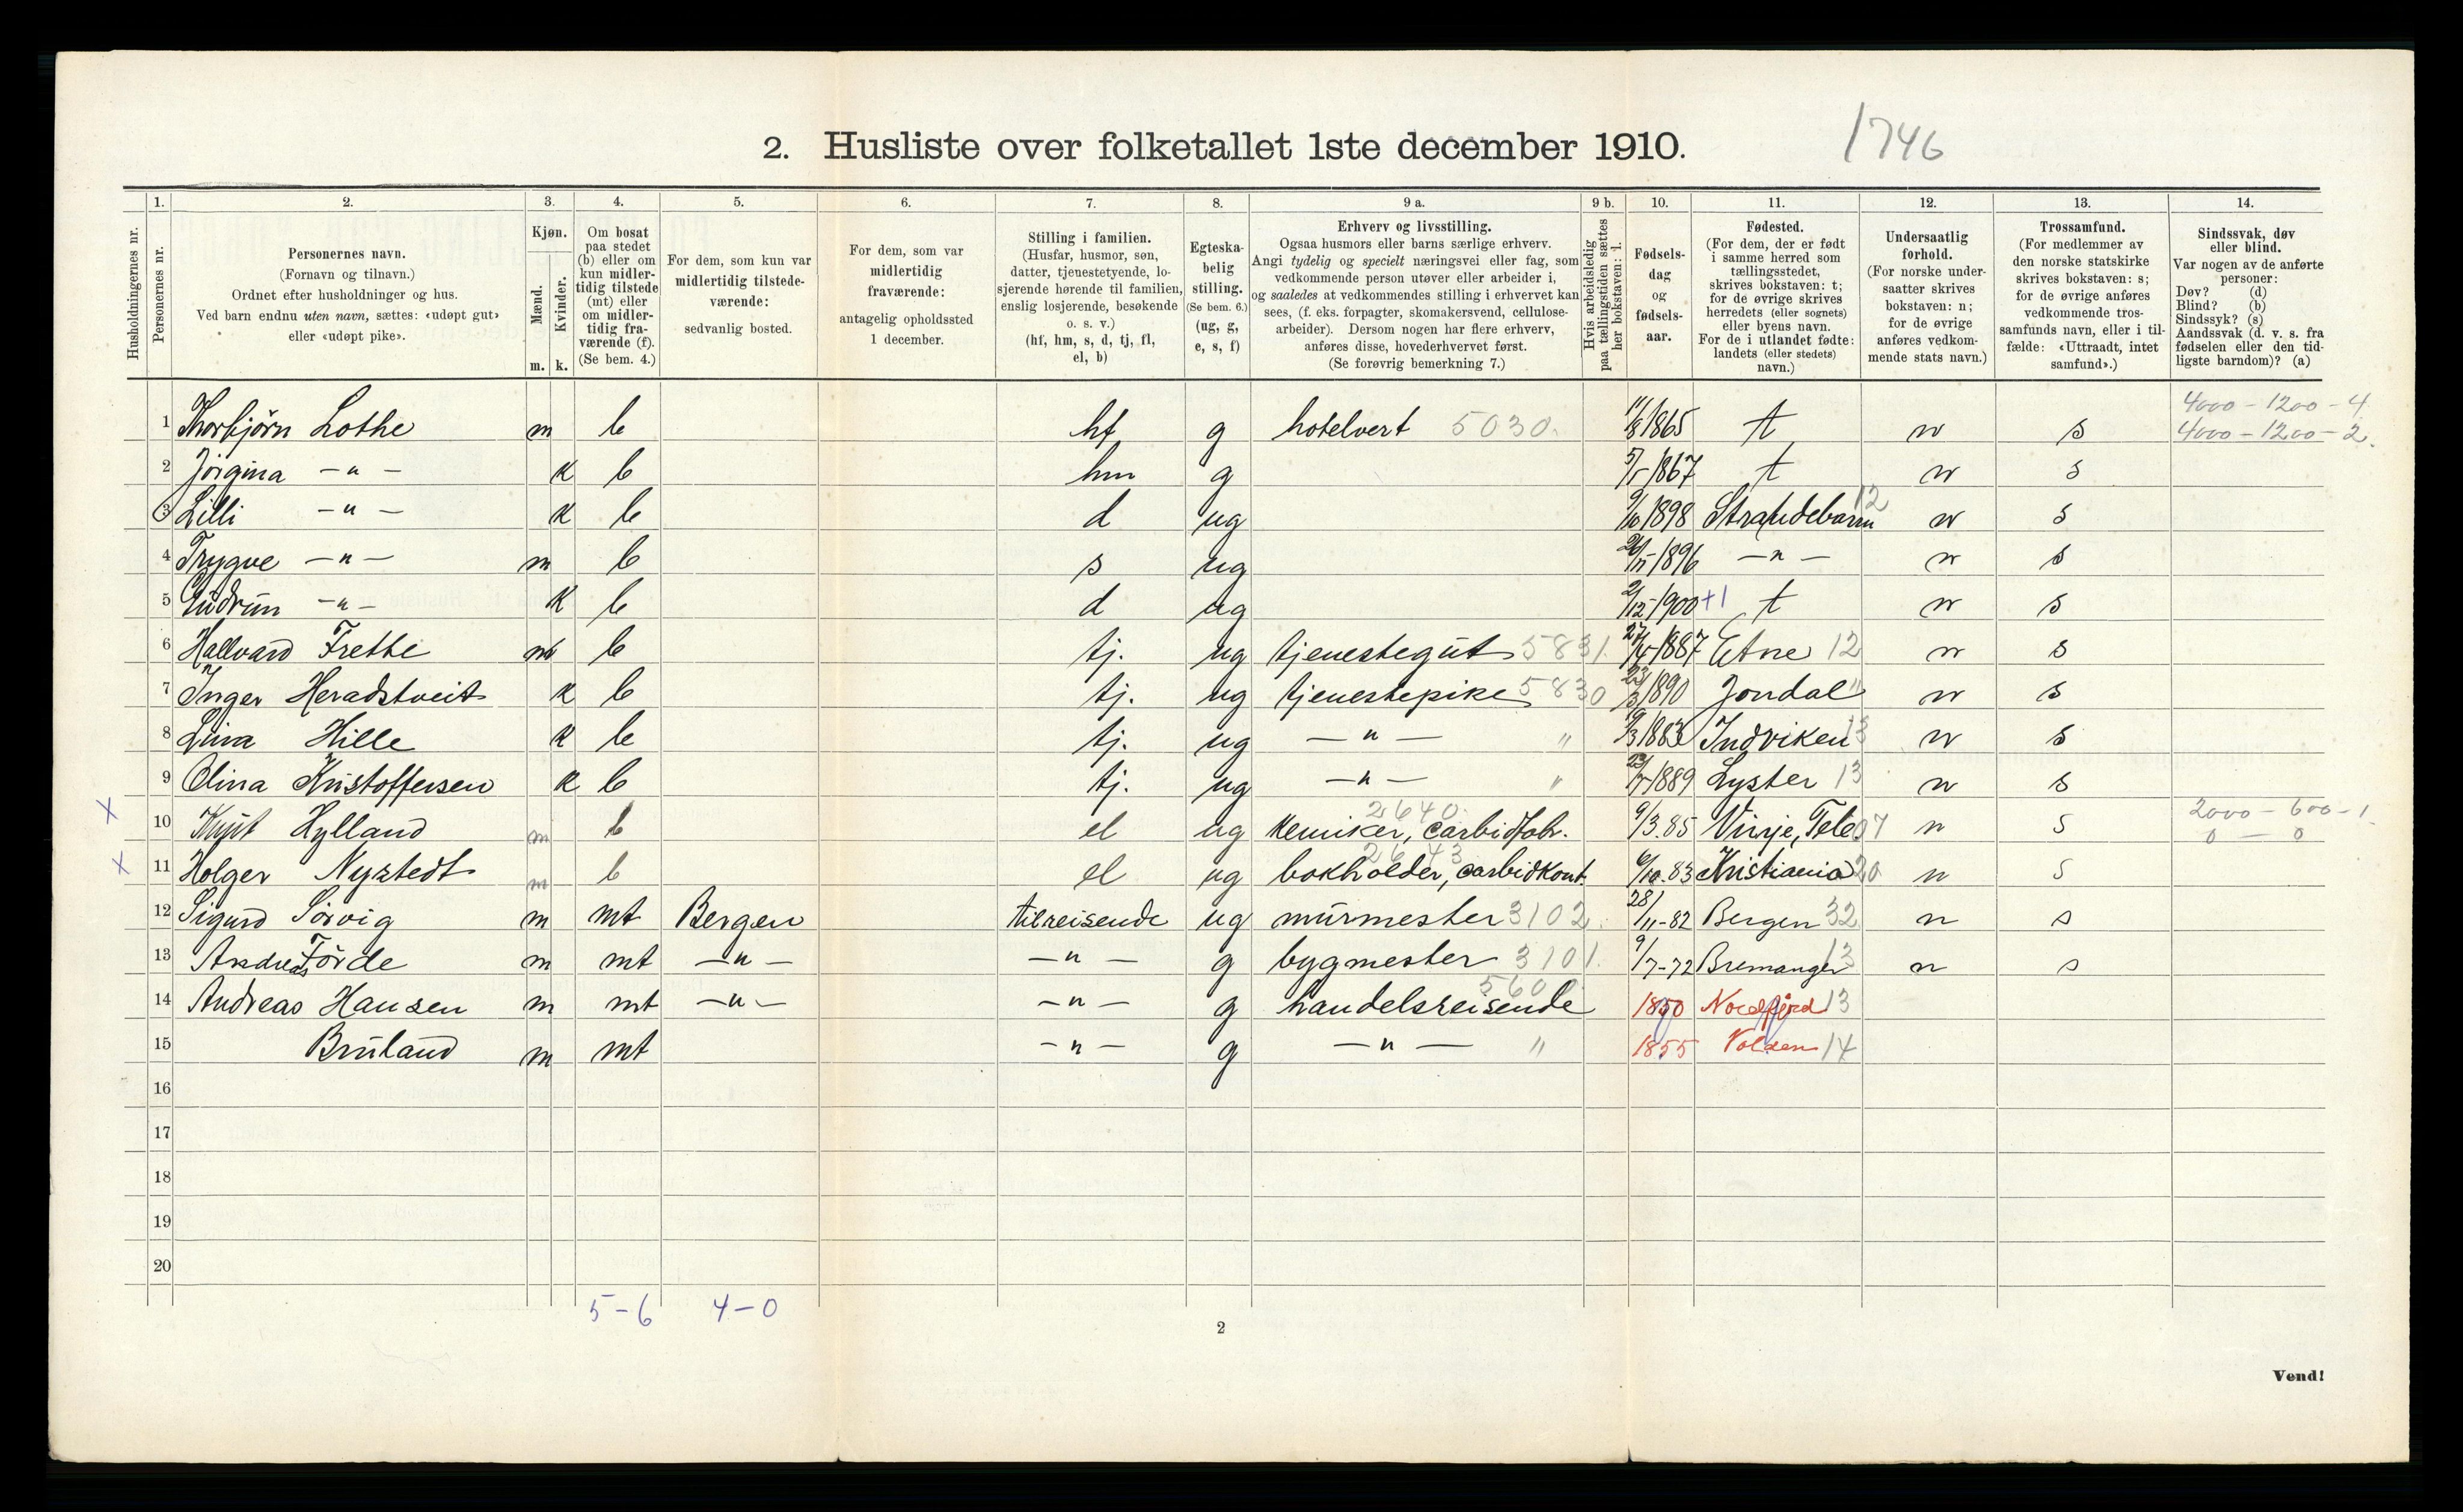 2. Husliste over folketallet 1ste december 1910. 1746
1. 2. 3. 4. 5. 6. 7. 8. 9 a. 9 b. 10. 11. 12. 13. 14.
Husholdningernes nr.
Personernes nr.
Personernes navn.
(Fornavn og tilnavn.)
Ordnet efter husholdninger og hus.
Ved barn endnu uten navn, sættes: «udøpt gut»
eller «udøpt pike».
Kjøn.
Mænd.
Kvinder.
m. k.
Om bosat
paa stedet
(b) eller om
kun midler-
tidig tilstede
(mt) eller
om midler-
tidig fra-
værende (f).
(Se bem. 4.)
For dem, som kun var
midlertidig tilstede-
værende:
sedvanlig bosted.
For dem, som var
midlertidig
fraværende:
antagelig opholdssted
1 december.
Stilling i familien.
(Husfar, husmor, søn,
datter, tjenestetyende, lo-
sjerende hørende til familien,
enslig losjerende, besøkende
o. s. v.)
(hf, hm, s, d, tj, fl,
el, b)
Egteska-
belig
stilling.
(Se bem. 6.)
(ug, g,
e, s, f)
Erhverv og livsstilling.
Ogsaa husmors eller barns særlige erhverv.
Angi tydelig og specielt næringsvei eller fag, som
vedkommende person utøver eller arbeider i,
og saaledes at vedkommendes stilling i erhvervet kan
sees, (f. eks. forpagter, skomakersvend, cellulose-
arbeider). Dersom nogen har flere erhverv,
anføres disse, hovederhvervet først.
(Se forøvrig bemerkning 7.)
Hvis arbeidsledig
paa tællingstiden sættes
her bokstaven: l.
Fødsels-
dag
og
fødsels-
aar.
Fødested.
(For dem, der er født
i samme herred som
tællingsstedet,
skrives bokstaven: t;
for de øvrige skrives
herredets (eller sognets)
eller byens navn.
For de i utlandet fødte:
landets (eller stedets)
navn.)
Undersaatlig
forhold.
(For norske under-
saatter skrives
bokstaven: n;
for de øvrige
anføres vedkom-
mende stats navn.)
Trossamfund.
(For medlemmer av
den norske statskirke
skrives bokstaven: s;
for de øvrige anføres
vedkommende tros-
samfunds navn, eller i til-
fælde: «Uttraadt, intet
samfund».)
Sindssvak, døv
eller blind.
Var nogen av de anførte
personer:
Døv? (d)
Blind? (b)
Sindssyk? (s)
Aandssvak (d. v. s. fra
fødselen eller den tid-
ligste barndom)? (a)
4000 – 1200 – 4
1 Thorbjörn Lothe m b hf g hotelvert 5030. 11/8 1865 t n s 4000 – 1200 – 2.
2 Jörgina –"– k b hm g 1867 t n s
3 Lilli –"– k b d ug 9/10 1898 Strandebarm 12 n s
4 Trygve –"– m b s ug 1896 –"– n s
5 Gudrun –"– k b d ug 2/12-1900 +1 t n s
6 Hallvard Frette m b tj. ug tjenestegut 5831. 1887 Etne 12 n s
7 Inger Heradstveit k b tj. ug tjenestepike 5830 1890 Jondal " n s
8 Lina Hille k b tj. ug –"– " 1883 Indviken 13 n s
9 Olina Kristoffersen k b tj. ug –"– " 1889 Lyster 13 n s
2640. 2000 – 600 – 1.
x 10 Knut Hylland m b el ug kemiker, carbidfabr. 9/3.85 Vinje, Tele 07 n s 0 – 0
2643
x 11 Holger Nystedt m b el ug bokholder, carbidkont. 6/10.83 Kristiania 20 n s
12 Sigurd Sörvig m mt Bergen tilreisende ug murmester 3102. 28/11-82 Bergen 32 n s
13 Andreas Förde m mt –"– –"– g bygmester 3101. 9/7-72 Bremanger 13 n s
14 Andreas Hansen m mt –"– –"– g handelsreisende 1850 Nordfjord 13
15 Bruland m mt –"– g –"– " 1855 Volden 14
16
17
18
19
20
5 – 6 4 – 0
2
Vend!